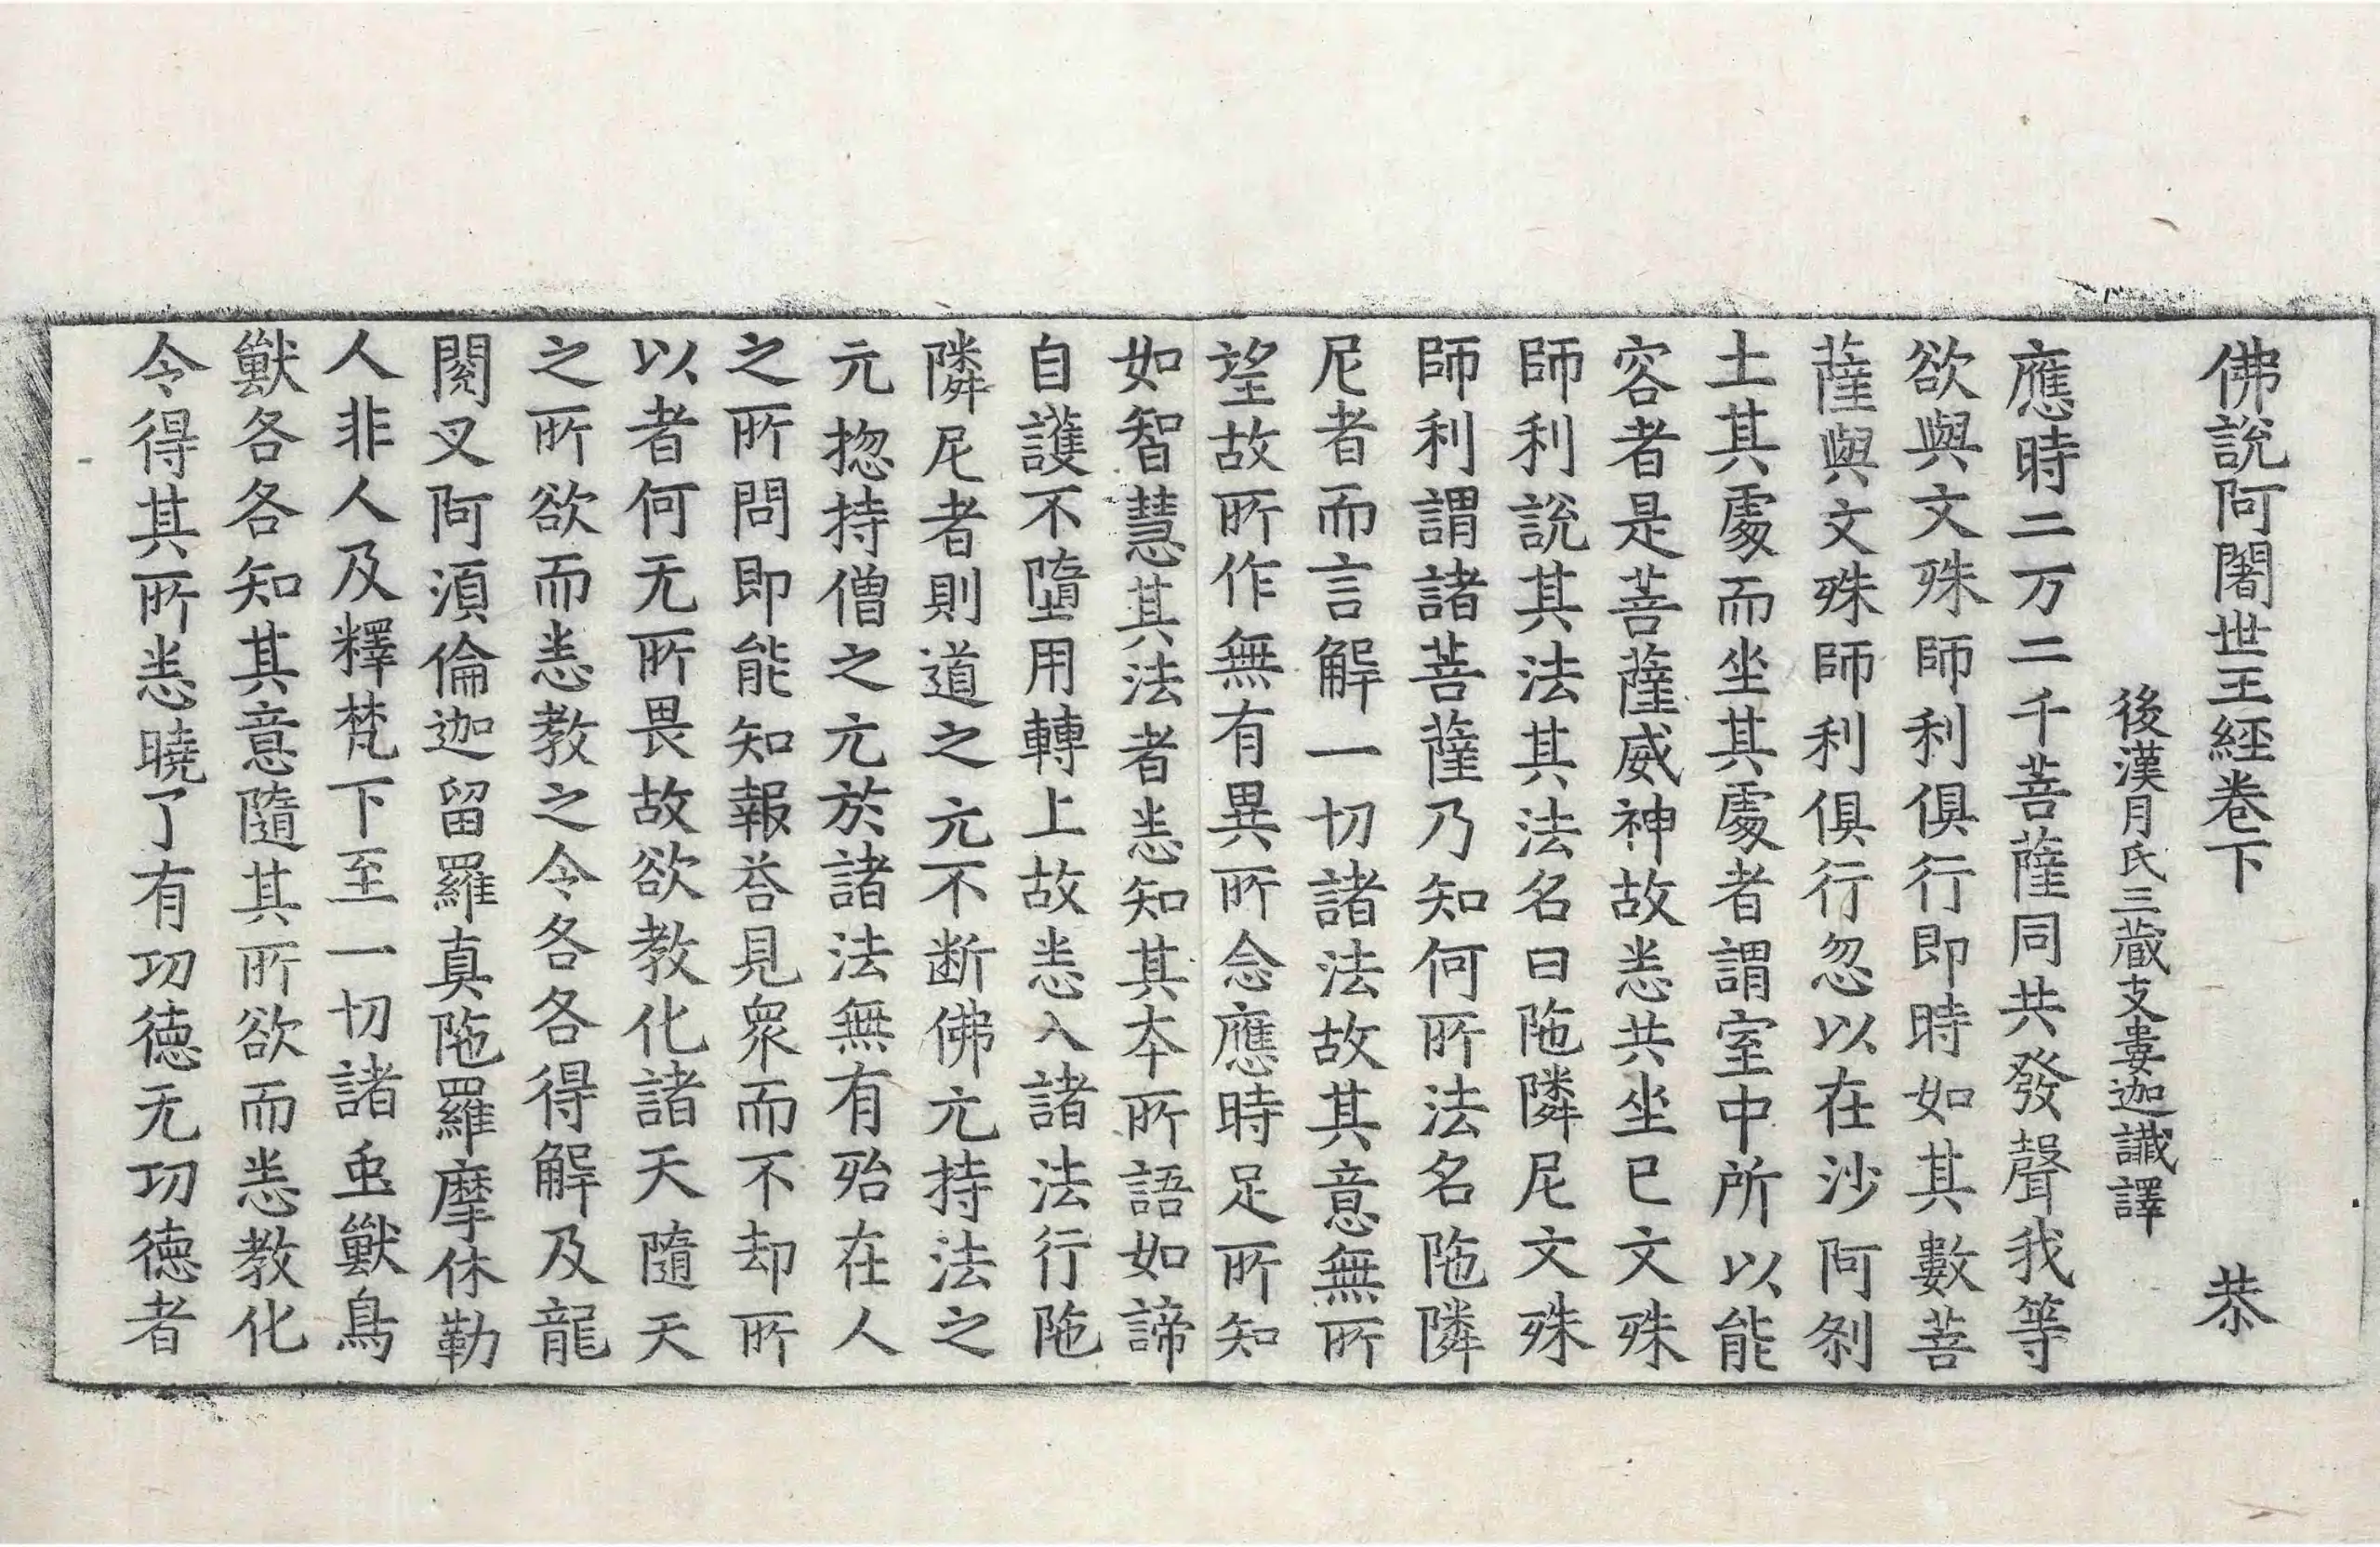 佛說阿闍世王經卷下　恭
後漢月氏三藏支婁迦讖譯
應時二万二千菩薩同共發聲我等
欲與文殊師利俱行即時如其數菩
薩與文殊師利俱行忽以在沙阿剎
土其處而坐其處者謂室中所以能
容者是菩薩威神故悉共坐已文殊
師利說其法其法名曰陁隣尼文殊
師利謂諸菩薩乃知何所法名陁隣
尼者而言解一切諸法故其意無所
望故所作無有異所念應時足所知
如智慧其法者悉知其夲所語如諦
自護不墮用轉上故悉入諸法行陁
隣尼者則道之元不断佛元持法之
元揔持僧之元於諸法無有殆在人
之所問即能知報荅見衆而不却所
以者何无所畏故欲教化諸天隨天
之所欲而悉教之令各各得解及龍
閱叉阿須倫迦留羅真陁羅摩休勒
人非人及釋梵下至一切諸䖝獸鳥
獸各各知其意隨其所欲而悉教化
令得其所悉曉了有功德无功德者